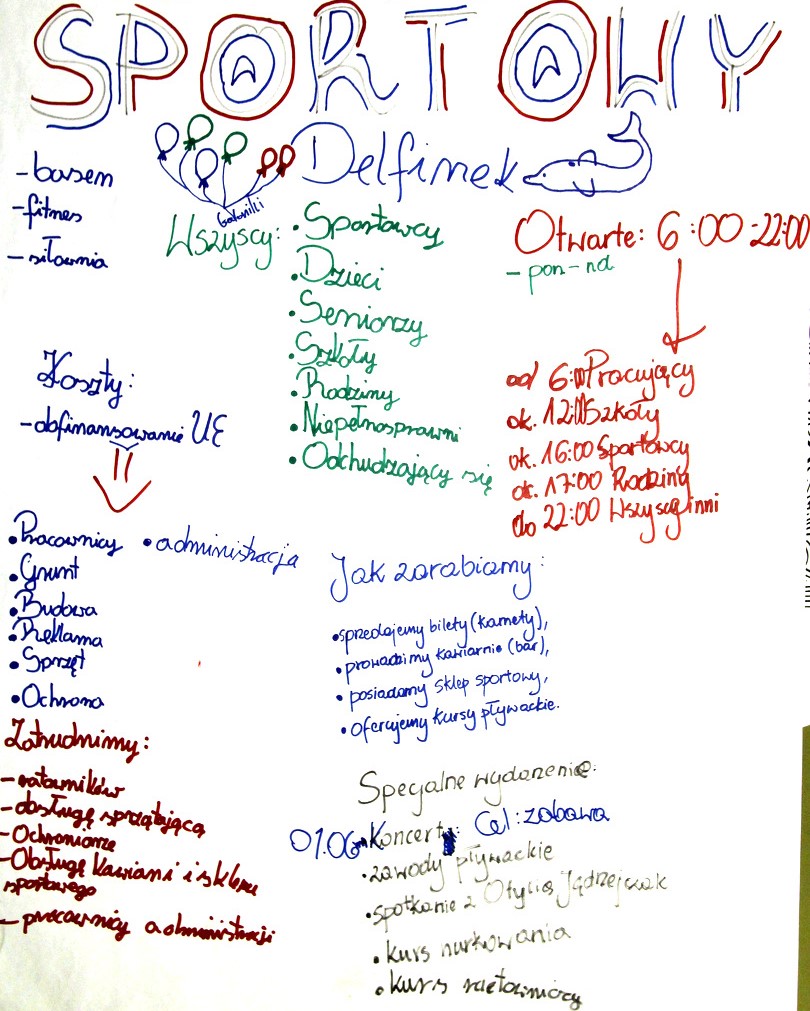 SPORTOWY
Delfinek
- basen
- fitnes
- siłownia
Wszyscy:
• Sportowcy
• Dzieci
• Seniorzy
• Szkoły
• Rodziny
• Niepełnosprawni
• Odchudzający się
Otwarte: 6:00-22:00
- pon-nd
od 6:00 Pracujący
ok. 12:00 Szkoły
ok. 16:00 Sportowcy
ok. 17:00 Rodziny
do 22:00 Wszyscy inni
Koszty:
- dofinansowanie UE
• Pracownicy • administracja
• Grunt
• Budowa
• Reklama
• Sprzęt
• Ochrona
Zatrudnimy:
- ratowników
- obsługę sprzątającą
- Ochroniarze
- Obsługę kawiarni i sklepu
sportowego
- pracownicy administracji
Jak zarabiamy:
• sprzedajemy bilety (karnety),
• prowadzimy kawiarnie (bar),
• posiadamy sklep sportowy,
• oferujemy kursy pływackie.
Specjalne wydarzenie:
01.06 • Koncerty: Cel: zabawa
• zawody pływackie
• spotkanie z Otylią Jędrzejczak
• kurs nurkowania
• kurs ratowniczy